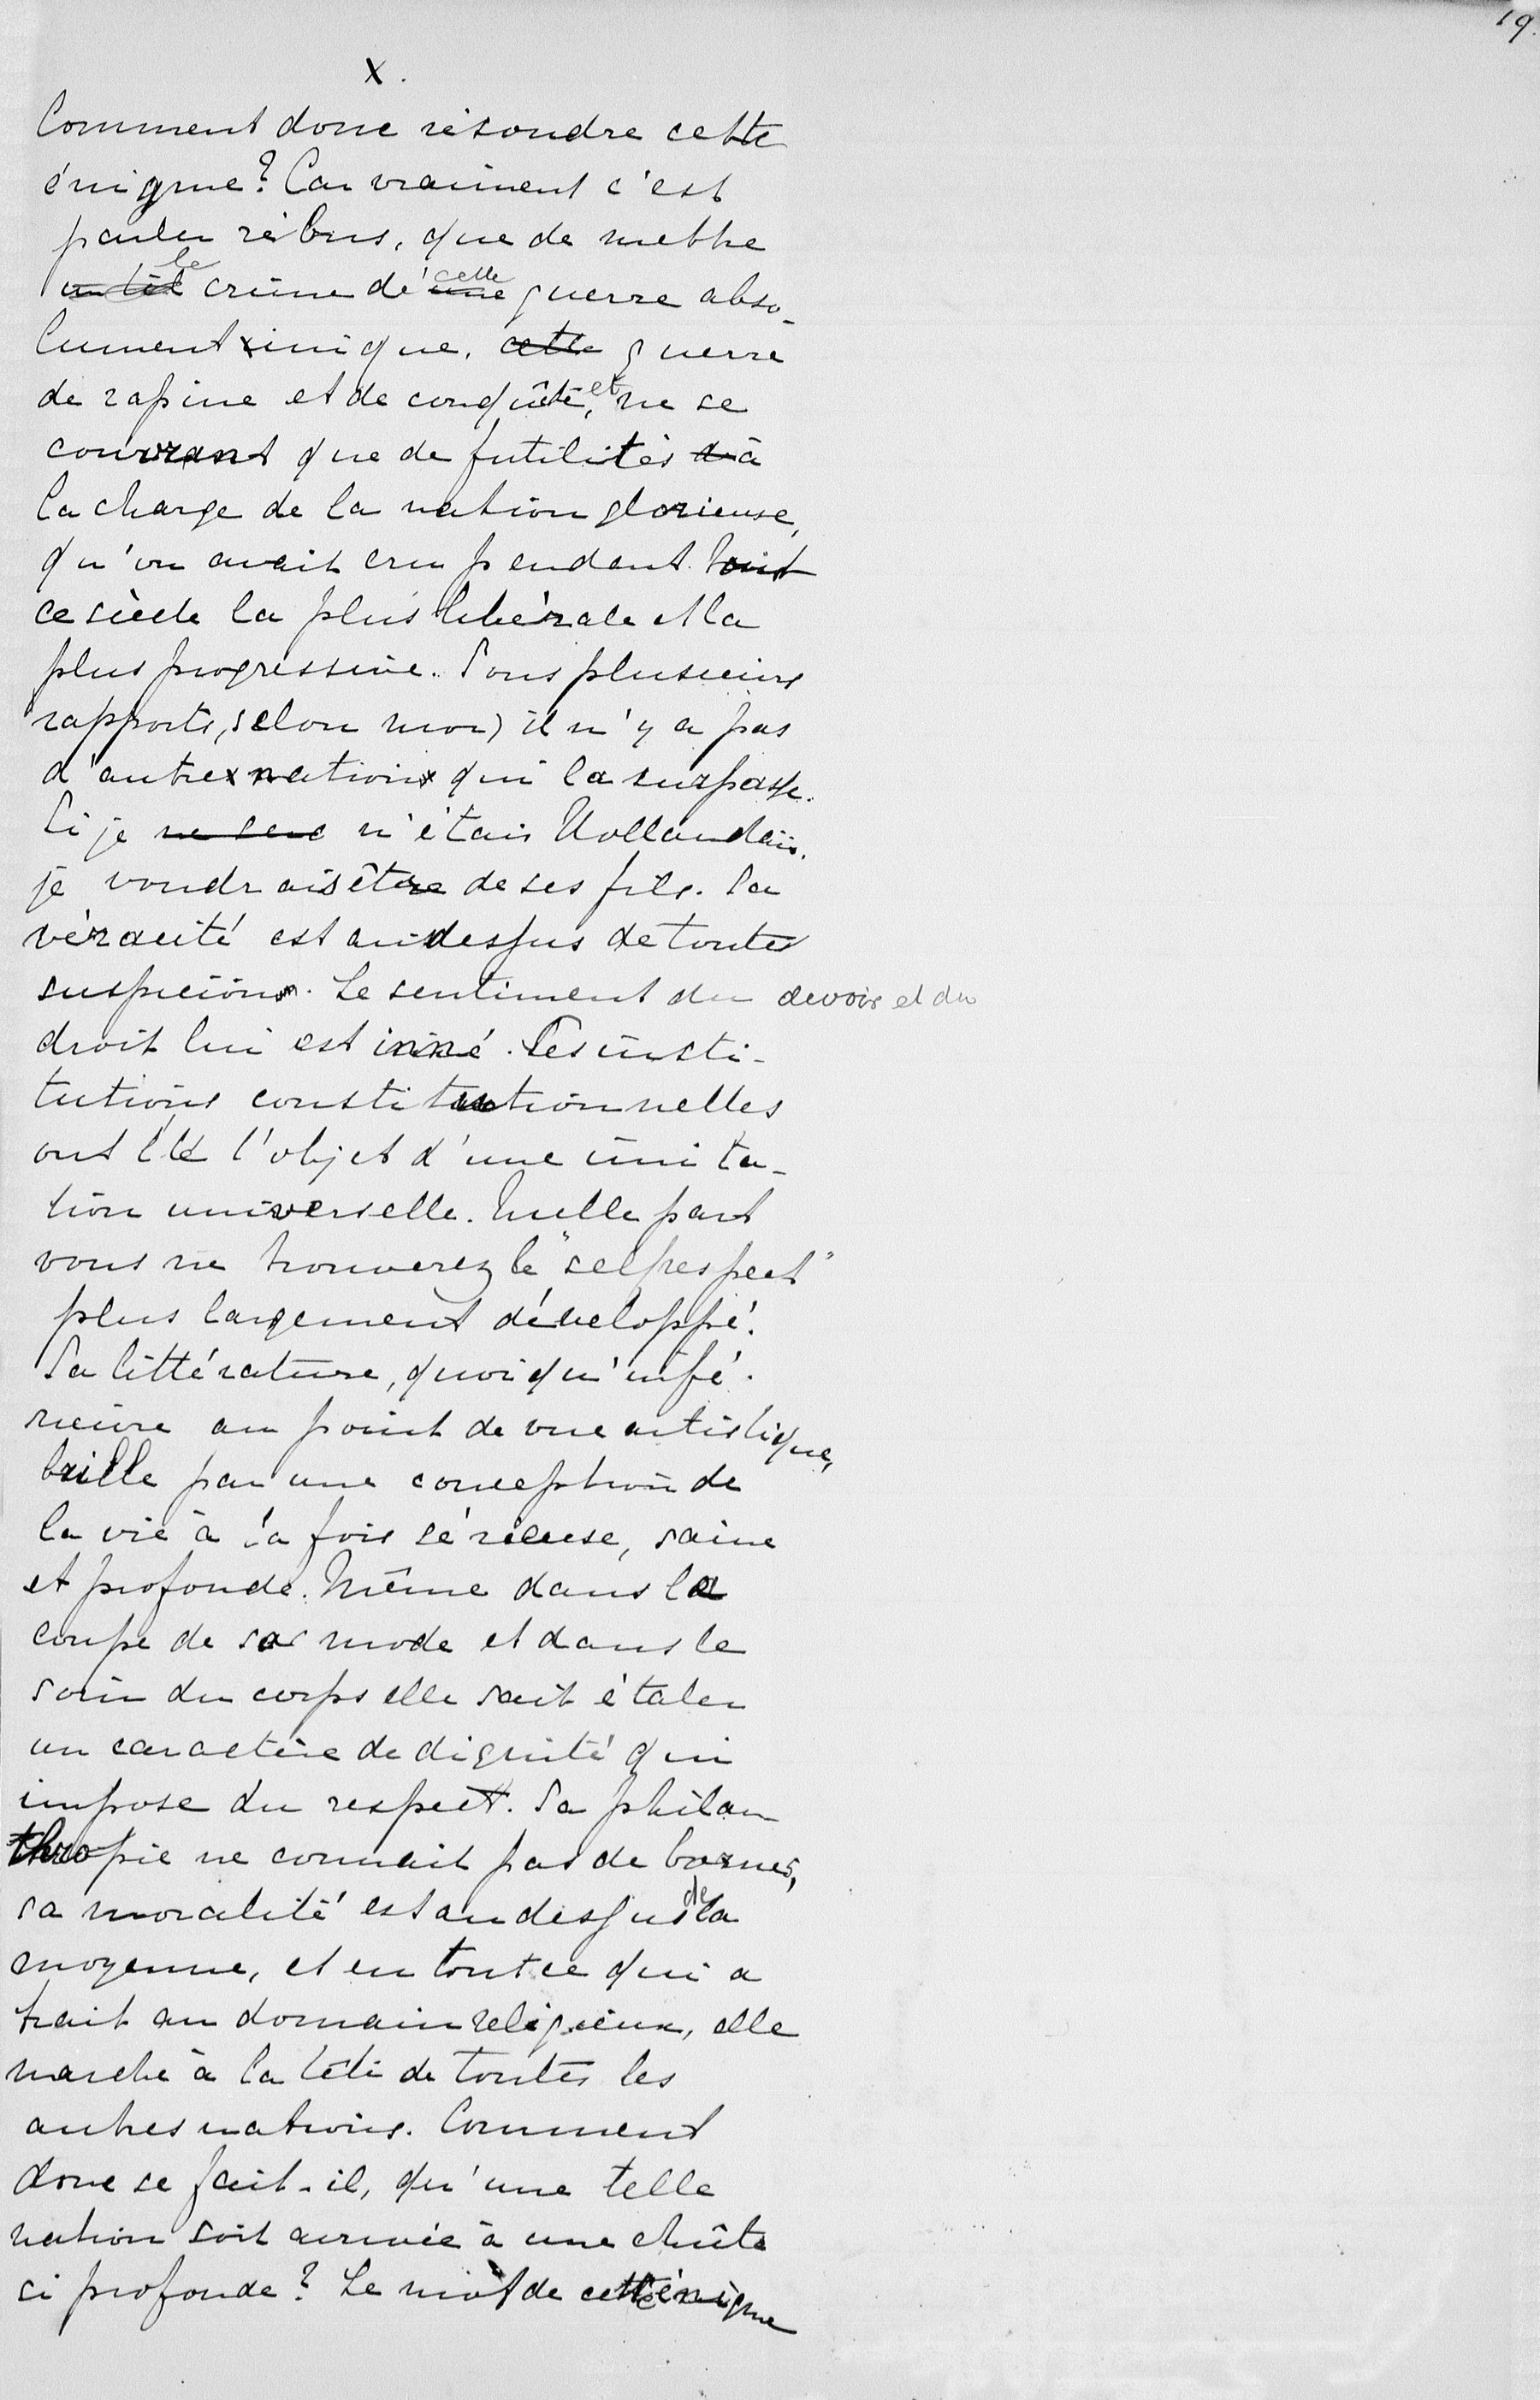 19.
X.
Comment donc résoudre cette
énigme? Car vraiment c'est
parler rébus, que de mettre
le crime de cette guerre abso-
lument inique, guerre
de rapine et de conquête, et ne se
couvrant que de futilités à
la charge de la nation glorieuse,
qu'on avait cru pendant tout
ce siècle la plus libérale et la
plus progressive. Sous plusieurs
rapports, selon moi, il n'y a pas
d'autre nation qui la surpasse.
Si je n'étais Hollandais,
je voudrais être de ses fils. Sa
véracité est audessus de toutes
suspicion. Le sentiment du devoir et du
droit lui est inné. Ses insti-
tutions constitutionnelles
ont été l'objet d'une imita-
tion universelle. Nulle part
vous ne trouverez le "selfrespect"
plus largement développé.
Sa littérature, quoiqu'infé-
rieure au point de vue artistique,
brille par une conception de
la vie à la fois sérieuse, saine
et profonde. Même dans la
coupe de sa mode et dans le
soin du corps elle sait étaler
un caractère de dignité qui
impose du respect. Sa philan
thropie ne connait pas de bornes,
sa moralité est audessus de la
moyenne, et en tout ce qui a
trait au domain religieux, elle
marche à la tête de toutes les
autres nations. Comment
donc se fait-il, qu'une telle
nation soit arrivée à une chûte
si profonde? Le mot de cette énigme